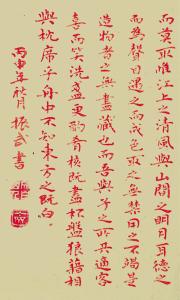 而莫取惟江上之清風與山間之明月耳得之
而為聲目遇之而成色取之無禁用之不竭是
造物者之無盡藏也而吾與子之所共適客
喜而笑洗盞更酌肴核既盡杯盤狼藉相
與枕席乎舟中不知東方之既白
丙申年秋月振武書